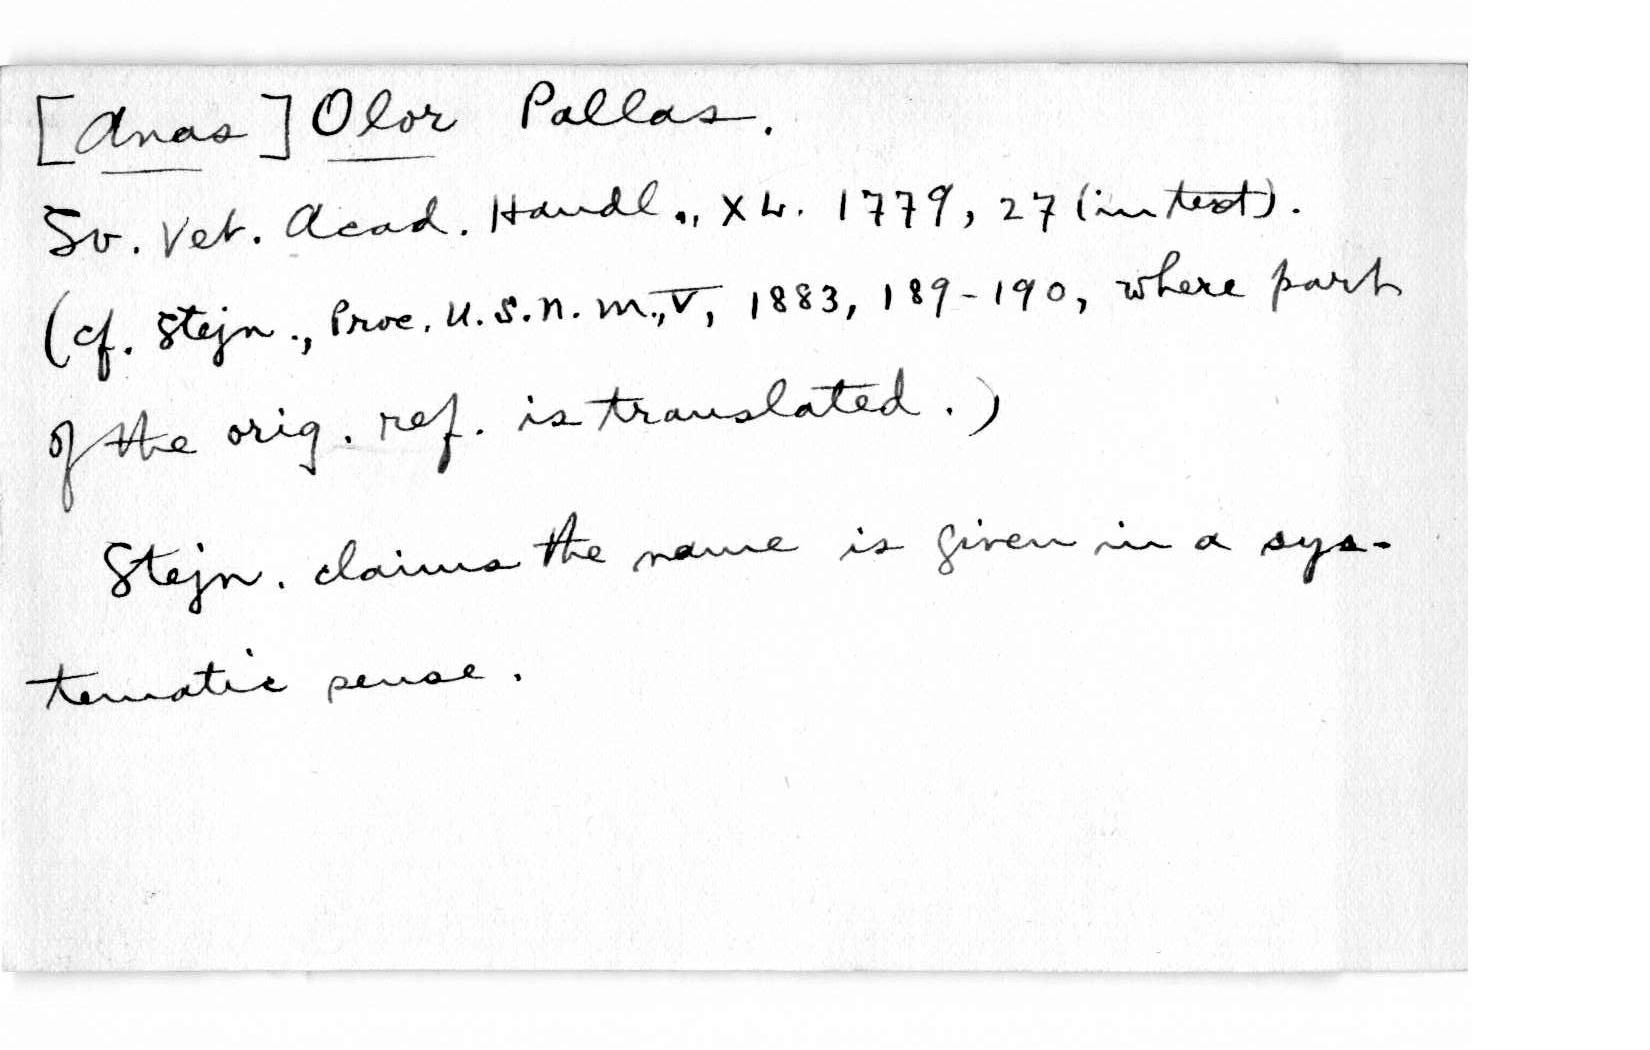 [Anas] Olor Pallas.
Sv. Vet. Acad. Handl., XL. 1779, 27 (in text).
(cf. Stejn., Proc. U.S.N.M., V, 1883, 189-190, where part
of the orig. ref. is translated.)
Stejn. claims the name is given in a sys-
tematic sense.